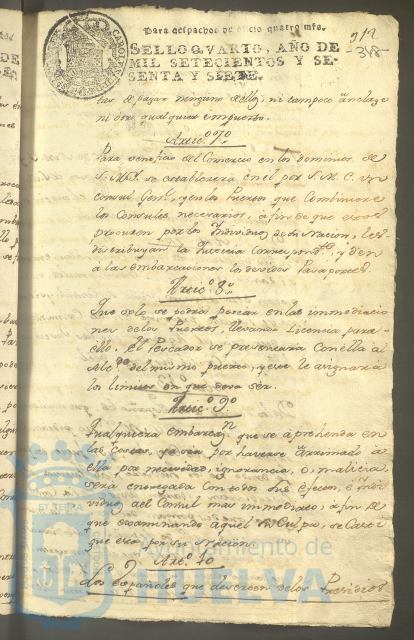 Para despachos de oficio quatro mrs.
312
348
SELLO QVARTO, AÑO DE
MIL SETECIENTOS Y SE-
SENTA Y SIETE.
tar de pagar ninguno de ellos, ni tampoco anclage
ni otro qualquier impuesto.
Artic.º 7º
Para beneficio del Comercio en los dominios de
S. M. I. se establecerá en el por S. M. C. un
Consul Gen.l, y en los Puertos que Combiniere
los Consules necesarios, a fin de que estos
protexan por los Individuos de su Nacion, les
distribuyan la Justicia Correspond.te, y den
á las embarcaciones los devidos Pasaportes.
Artic.º 8º
Que solo se podrá pescar en las inmediacio
nes de los Puertos, llevando Licencia para
ello. El Pescador se presentará Con ella al
Alc.de del mismo puerto, y este le asignará
los limites en que deva ser.
Artic.º 9º
Qualquiera embarcaz.n que se aprehenda en
las Costas, ya sea por haverse arrimado á
ella por necesidad, ignorancia, o malicia
será entregada Con todos sus efectos, é Indi
viduos al Consul mas inmediato, a fin de
que examinando aquel su Culpa, se Casti
gue esta por su Nacion.
Artic.º 10
Los Españoles que deserten de los Presidios
Ayuntamiento de
HUELVA